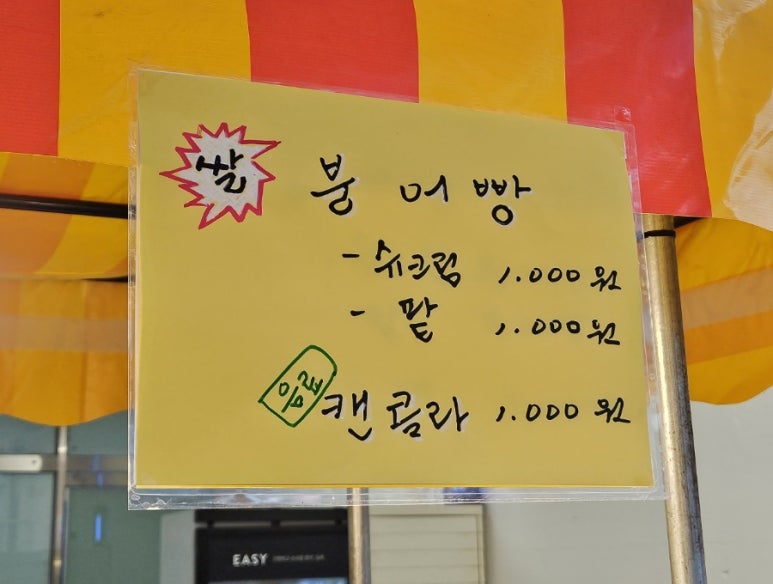 쌀 붕어빵
- 슈크림 1.000원
- 팥 1.000원
음료 캔콜라 1.000원
EASY